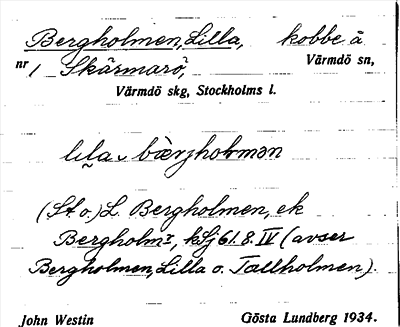 Bergholmen, Lilla, kobbe å
nr 1 Skärmarö, Värmdö sn,
Värmdö skg, Stockholms l.
lila bærjholmən
(St. o.) L. Bergholmen, ek
Bergholm, kSj 61. 8. IV (avser
Bergholmen, Lilla o. Tallholmen).
John Westin Gösta Lundberg 1934.